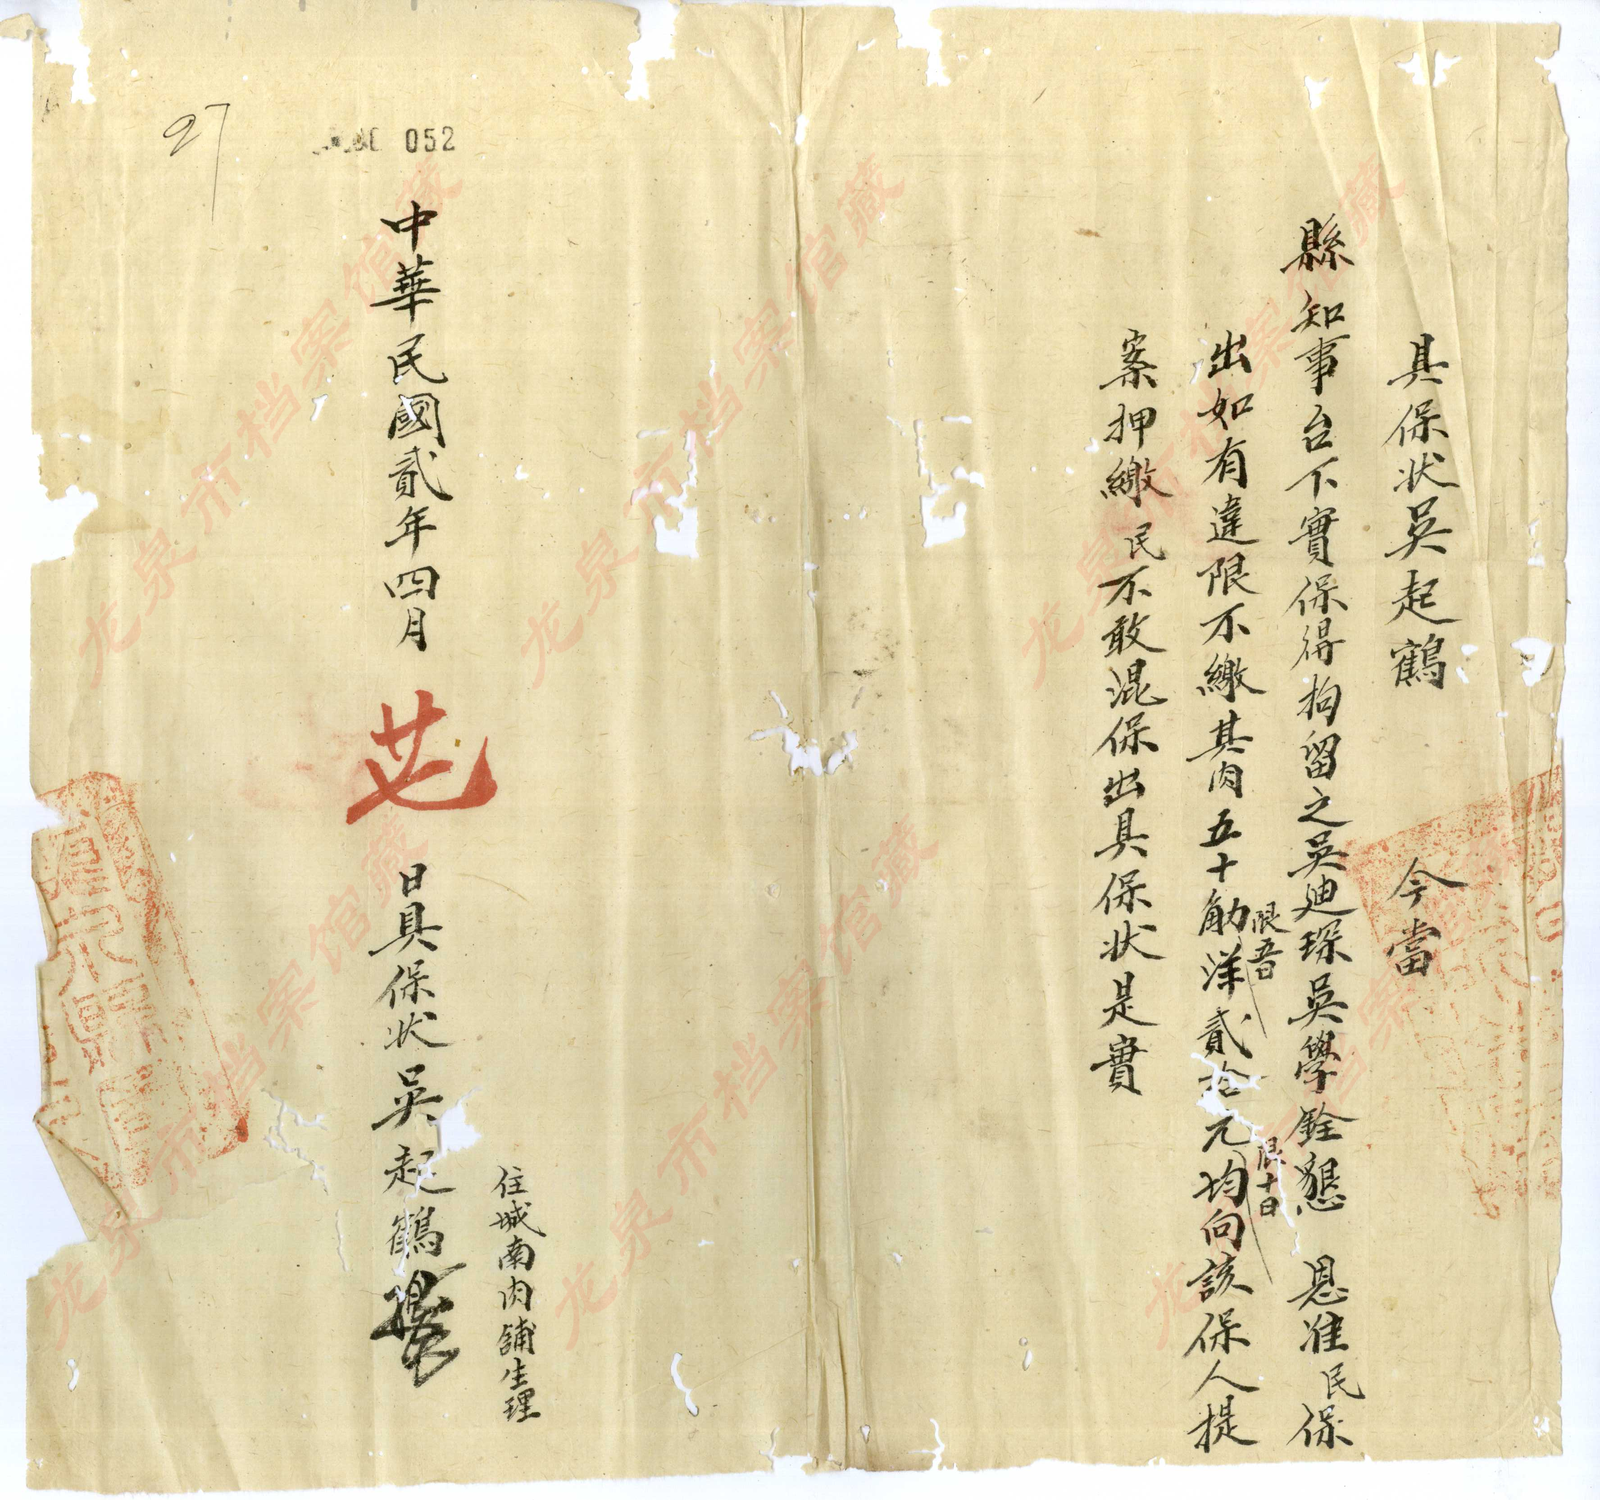 具保状吳起鶴　今當
縣知事台下實保得拘留之吳迪琛吳學銓懇　恩准民保
出如有違限不繳其肉五十觔限五日洋貳拾元限十日均向該保人提
案押繳民不敢混保出具保状是實
住城南肉舖生理
中華民國貳年四月廿七日具保状吳起鶴
052
27
龙泉市档案馆藏